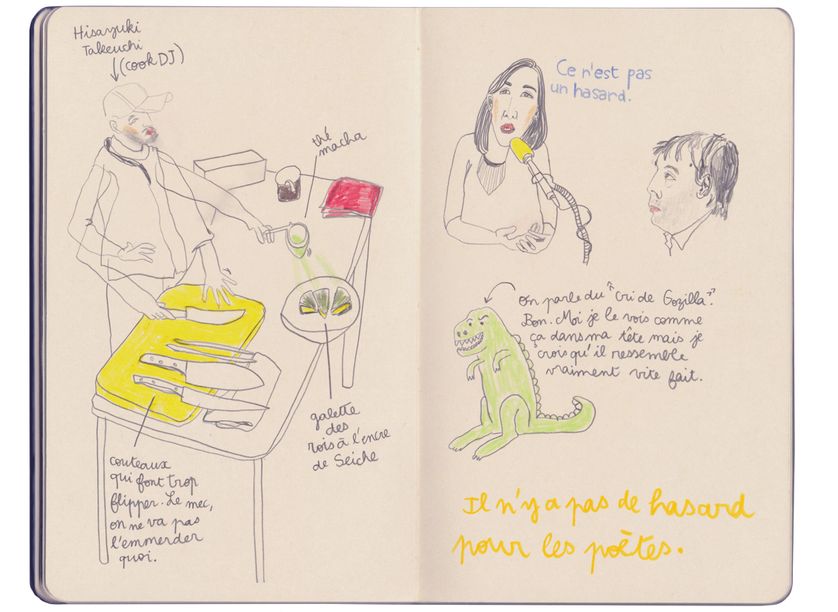 Hisayuki
Takeuchi
(cook DJ)
thé
macha
galette
des
rois à l'encre
de Seiche
couteaux
qui font trop
flipper. Le mec,
on ne va pas
l'emmerder
quoi.
Ce n'est pas
un hasard.
On parle du "cri de Gozilla".
Bon. Moi je le vois comme
ça dans ma tête mais je
crois qu'il ressemble
vraiment vite fait.
Il n'y a pas de hasard
pour les poètes.